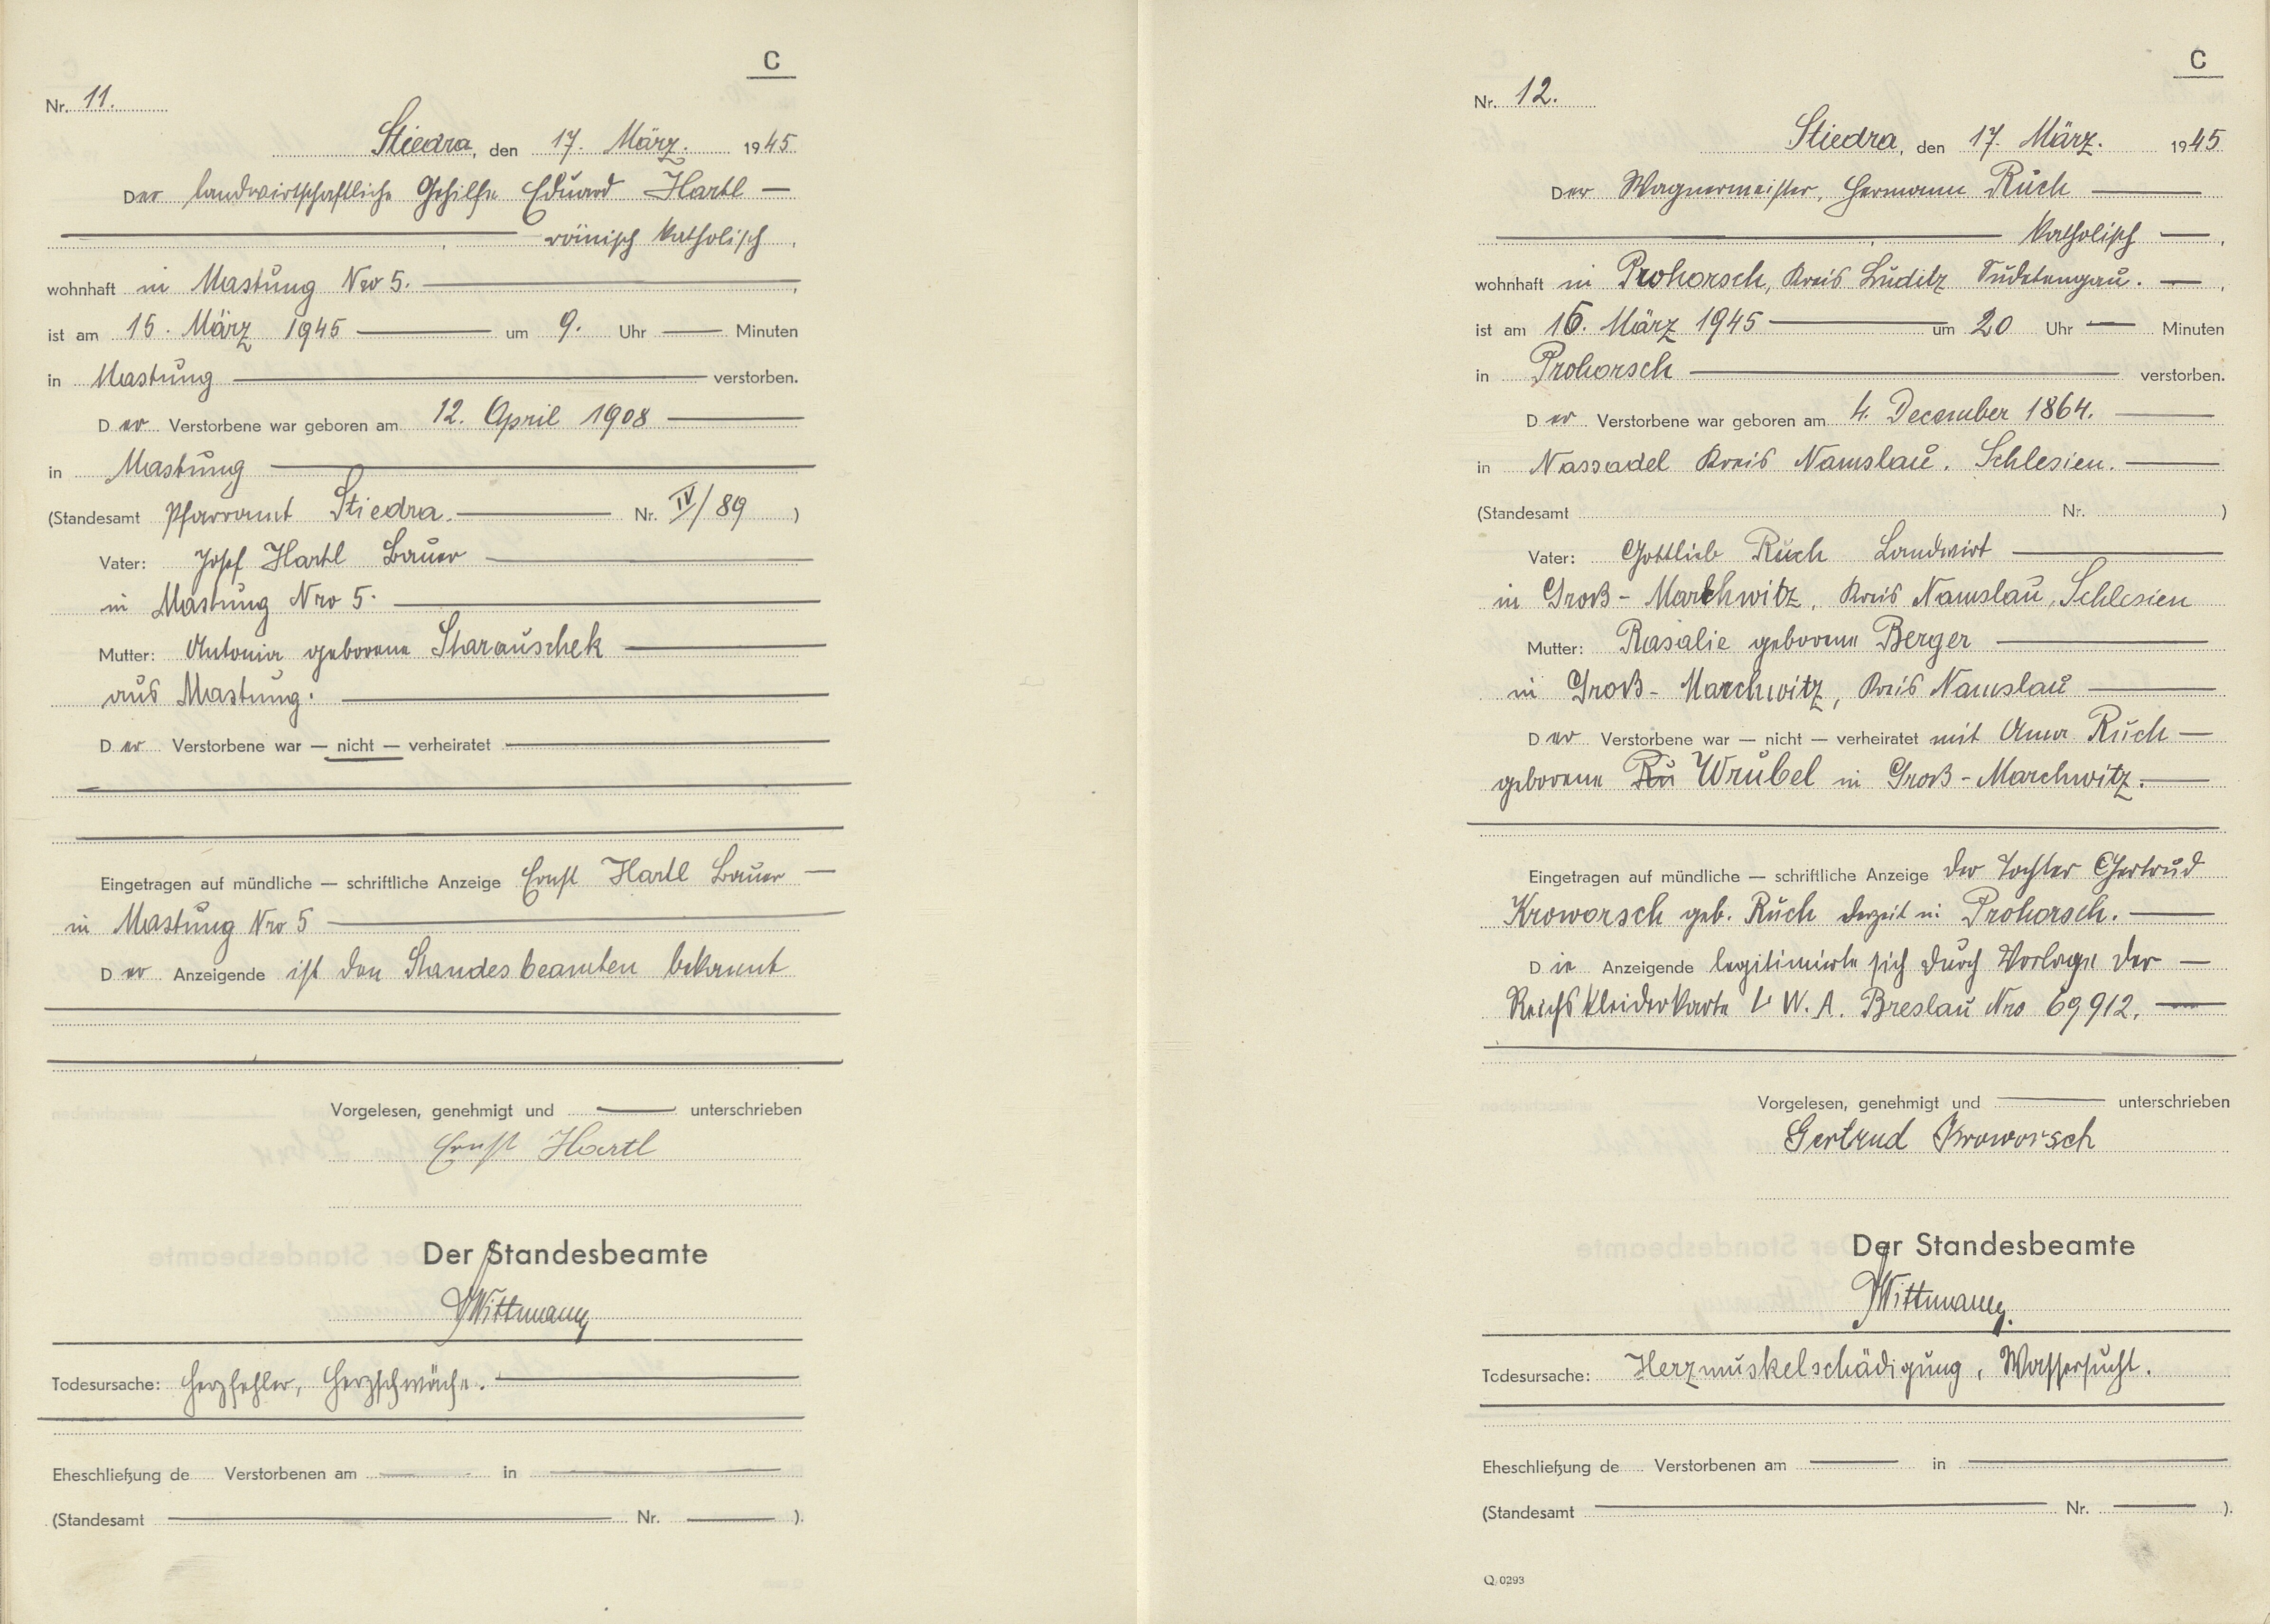 C
Nr. 11.
Stiedra, den 17. März. 1945
Der landwirtschaftliche Gehilfe Eduard Hartl
römisch katholisch,
wohnhaft in Mastung Nro 5.
ist am 15. März 1945 um 9. Uhr Minuten
in Mastung verstorben.
Der Verstorbene war geboren am 12. April 1908
in Mastung
(Standesamt Pfarramt Stiedra. Nr. IV/89 )
Vater: Josef Hartl Bauer
in Mastung Nro 5.
Mutter: Antonia geborene Starauschek
aus Mastung.
Der Verstorbene war — nicht — verheiratet
Eingetragen auf mündliche — schriftliche Anzeige Ernst Hartl Bauer
in Mastung Nro 5
Der Anzeigende ist den Standesbeamten bekannt
Vorgelesen, genehmigt und unterschrieben
Ernst Hartl
Der Standesbeamte
Wittmann
Todesursache: Herzfehler, Herzschwäche.
Eheschließung de Verstorbenen am in
(Standesamt Nr. ).
C
Nr. 12.
Stiedra, den 17. März. 1945
Der Wagnermeister, Hermann Ruch
katholisch,
wohnhaft in Prohorsch, Kreis Luditz Sudetengau.,
ist am 16. März 1945 um 20 Uhr Minuten
in Prohorsch verstorben.
Der Verstorbene war geboren am 4. December 1864.
in Nassadel Kreis Namslau. Schlesien.
(Standesamt Nr. )
Vater: Gottlieb Ruch Landwirt
in Groß-Marchwitz, Kreis Namslau, Schlesien
Mutter: Rasalie geborene Berger
in Groß-Marchwitz, Kreis Namslau
Der Verstorbene war — nicht — verheiratet mit Anna Ruch
geborene Ru Wrubel in Groß-Marchwitz.
Eingetragen auf mündliche — schriftliche Anzeige der Tochter Gertrud
Kroworsch geb. Ruch derzeit in Prohorsch.
Die Anzeigende legitimierte sich durch Vorlage der
Reichskleiderkarte L W. A. Breslau Nro 69912.
Vorgelesen, genehmigt und unterschrieben
Gertrud Kroworsch
Der Standesbeamte
Wittmann
Todesursache: Herzmuskelschädigung, Wassersucht.
Eheschließung de Verstorbenen am in
(Standesamt Nr. ).
Q 0293